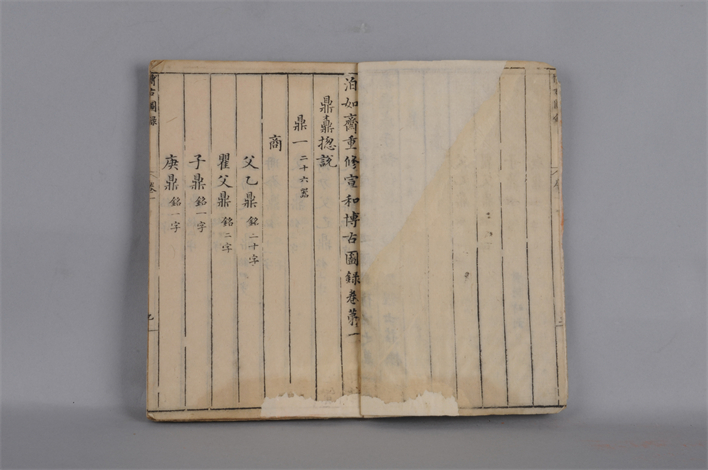 泊如齋重修宣和博古圖錄卷第一
鼎鼐捴說
鼎一 二十六器
商
父乙鼎 銘二十字
瞿父鼎 銘二字
子鼎 銘一字
庚鼎 銘一字
博古圖錄 卷一